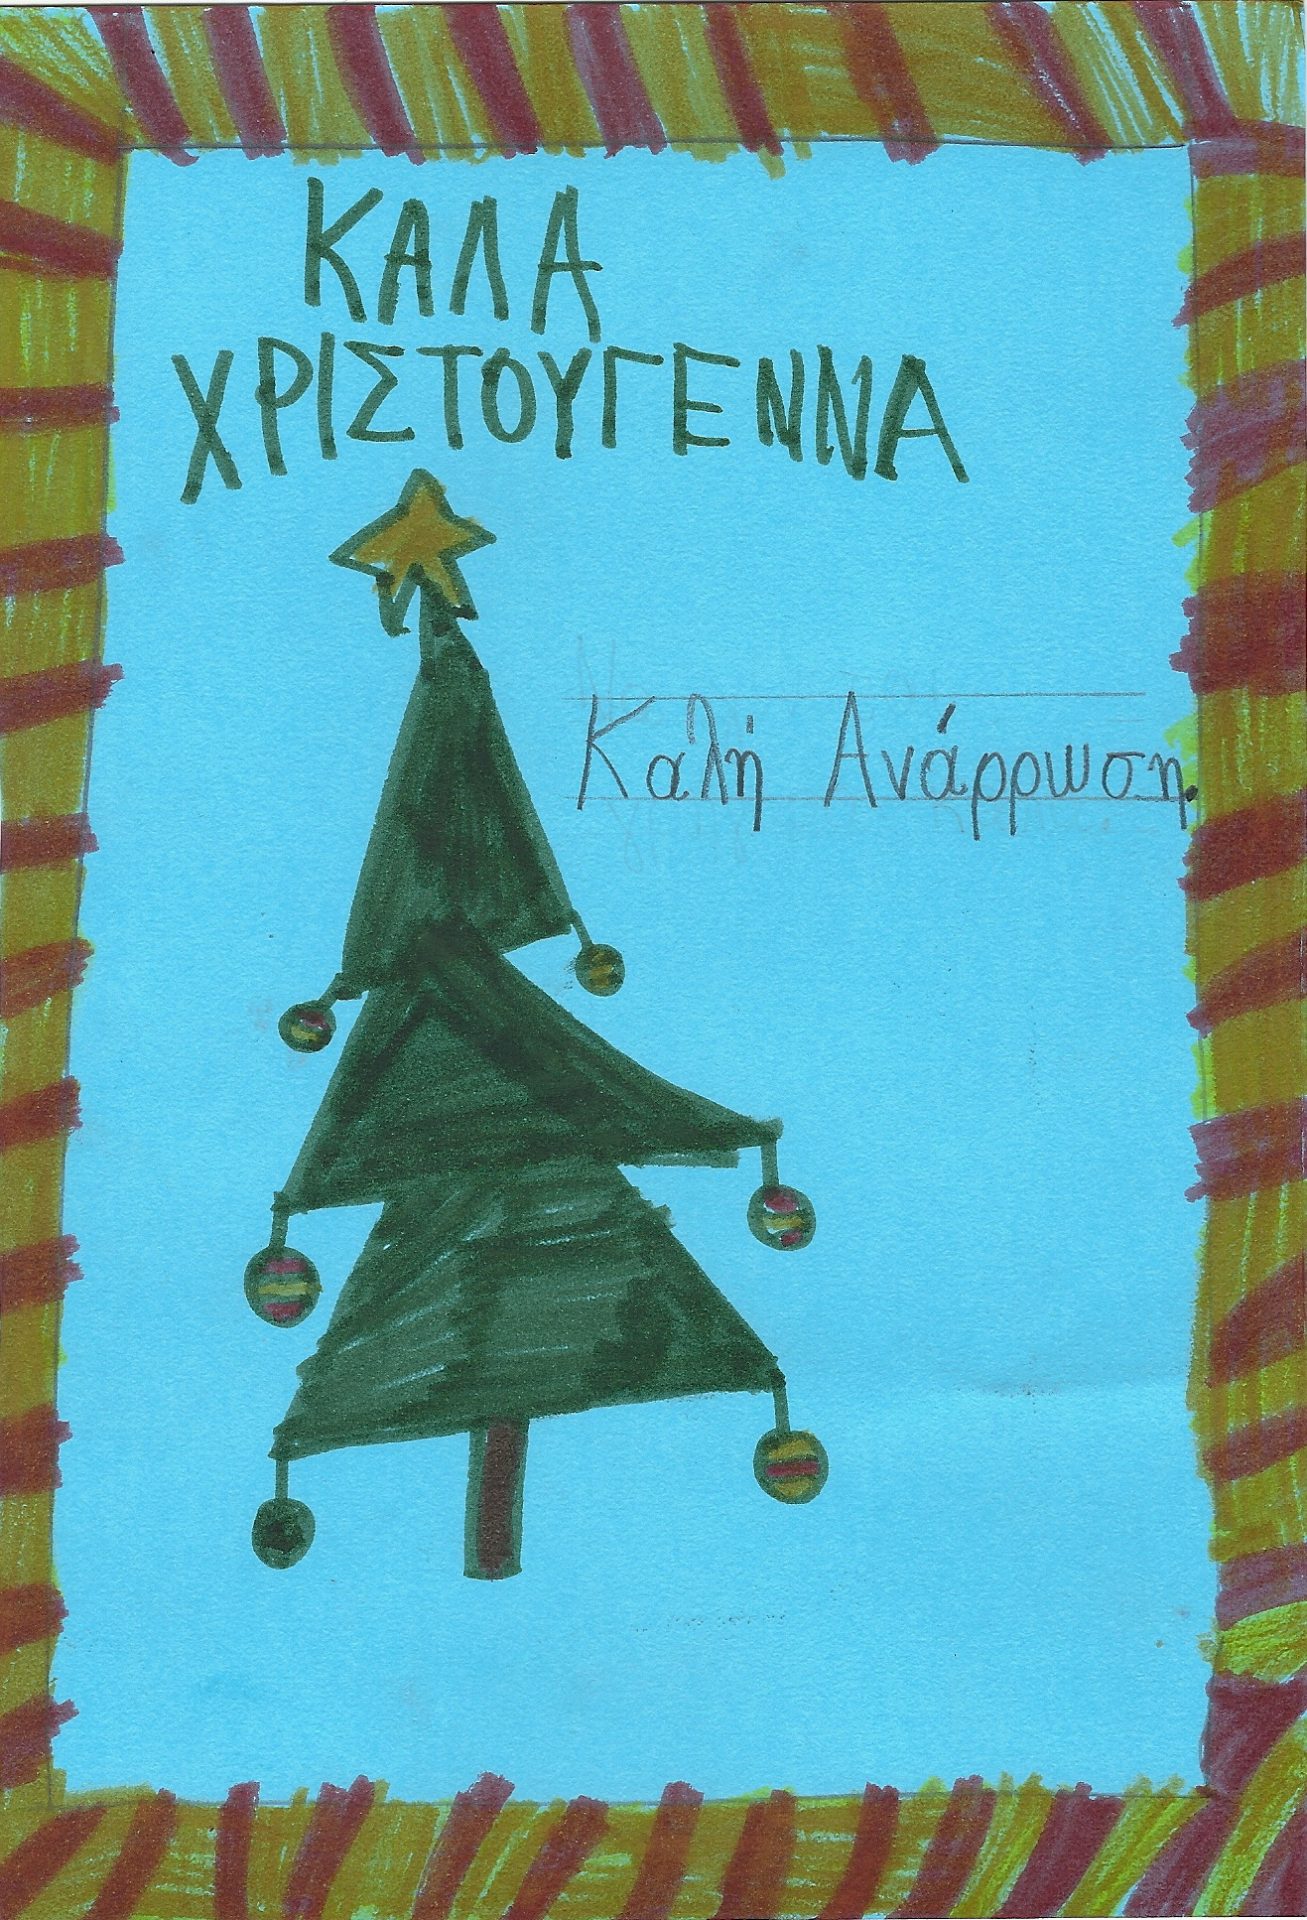 ΚΑΛΑ
ΧΡΙΣΤΟΥΓΕΝΝΑ
Καλή Ανάρρωση.